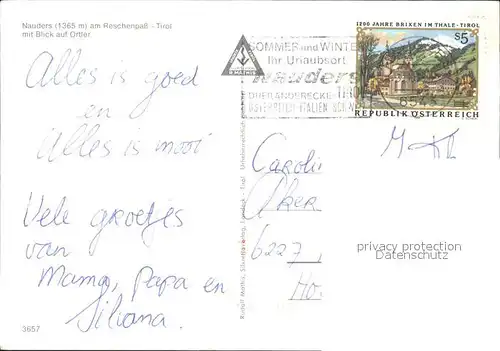 Nauders (1365 m) am Reschenpaß - Tirol
mit Blick auf Ortler
1200 JAHRE BRIXEN IM THALE · TIROL
S5
REPUBLIK ÖSTERREICH
SOMMER und WINTER
Ihr Urlaubsort
Nauders
TIROL
DREILÄNDERECKE
ÖSTERREICH-ITALIEN-SCHWEIZ
Alles is goed
en
Alles is mooi
Vele groetjes
van
Mama, papa en
Siliana.
6227
privacy protection
Datenschutz
3657